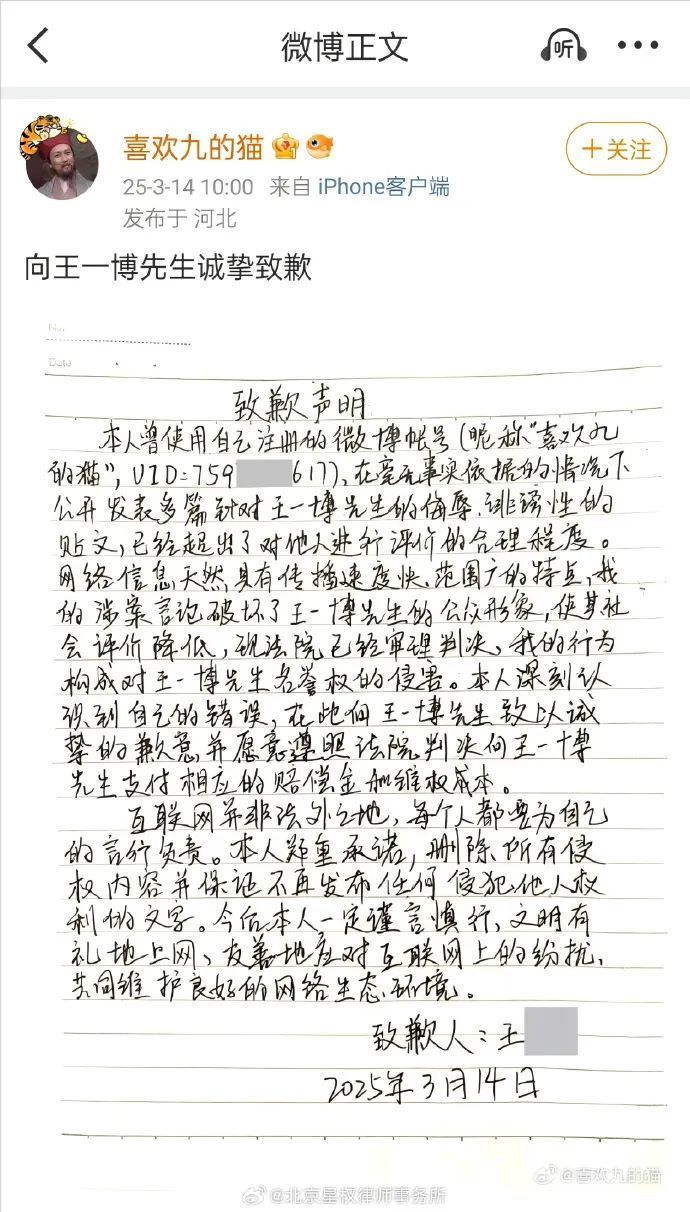 微博正文
听
喜欢九的猫
+关注
25-3-14 10:00 来自 iPhone客户端
发布于 河北
向王一博先生诚挚致歉
No.
Date
致歉声明
本人曾使用自己注册的微博帐号(昵称“喜欢九
的猫”,UID:759 617),在毫无事实依据的情况下
公开发表多篇针对王一博先生的侮辱、诽谤性的
贴文,已经超出了对他人进行评价的合理程度。
网络信息天然具有传播速度快、范围广的特点,我
的涉案言论破坏了王一博先生的公众形象,使其社
会评价降低,现法院已经审理判决,我的行为
构成对王一博先生名誉权的侵害。本人深刻认
识到自己的错误,在此向王一博先生致以诚
挚的歉意,并愿意遵照法院判决向王一博
先生支付相应的赔偿金和维权成本。
互联网并非法外之地,每个人都要为自己
的言行负责。本人郑重承诺,删除所有侵
权内容并保证不再发布任何侵犯他人权
利的文字。今后本人一定谨言慎行,文明有
礼地上网、友善地应对互联网上的纷扰、
共同维护良好的网络生态环境。
致歉人:王
2025年3月14日
@北京星权律师事务所
@喜欢九的猫